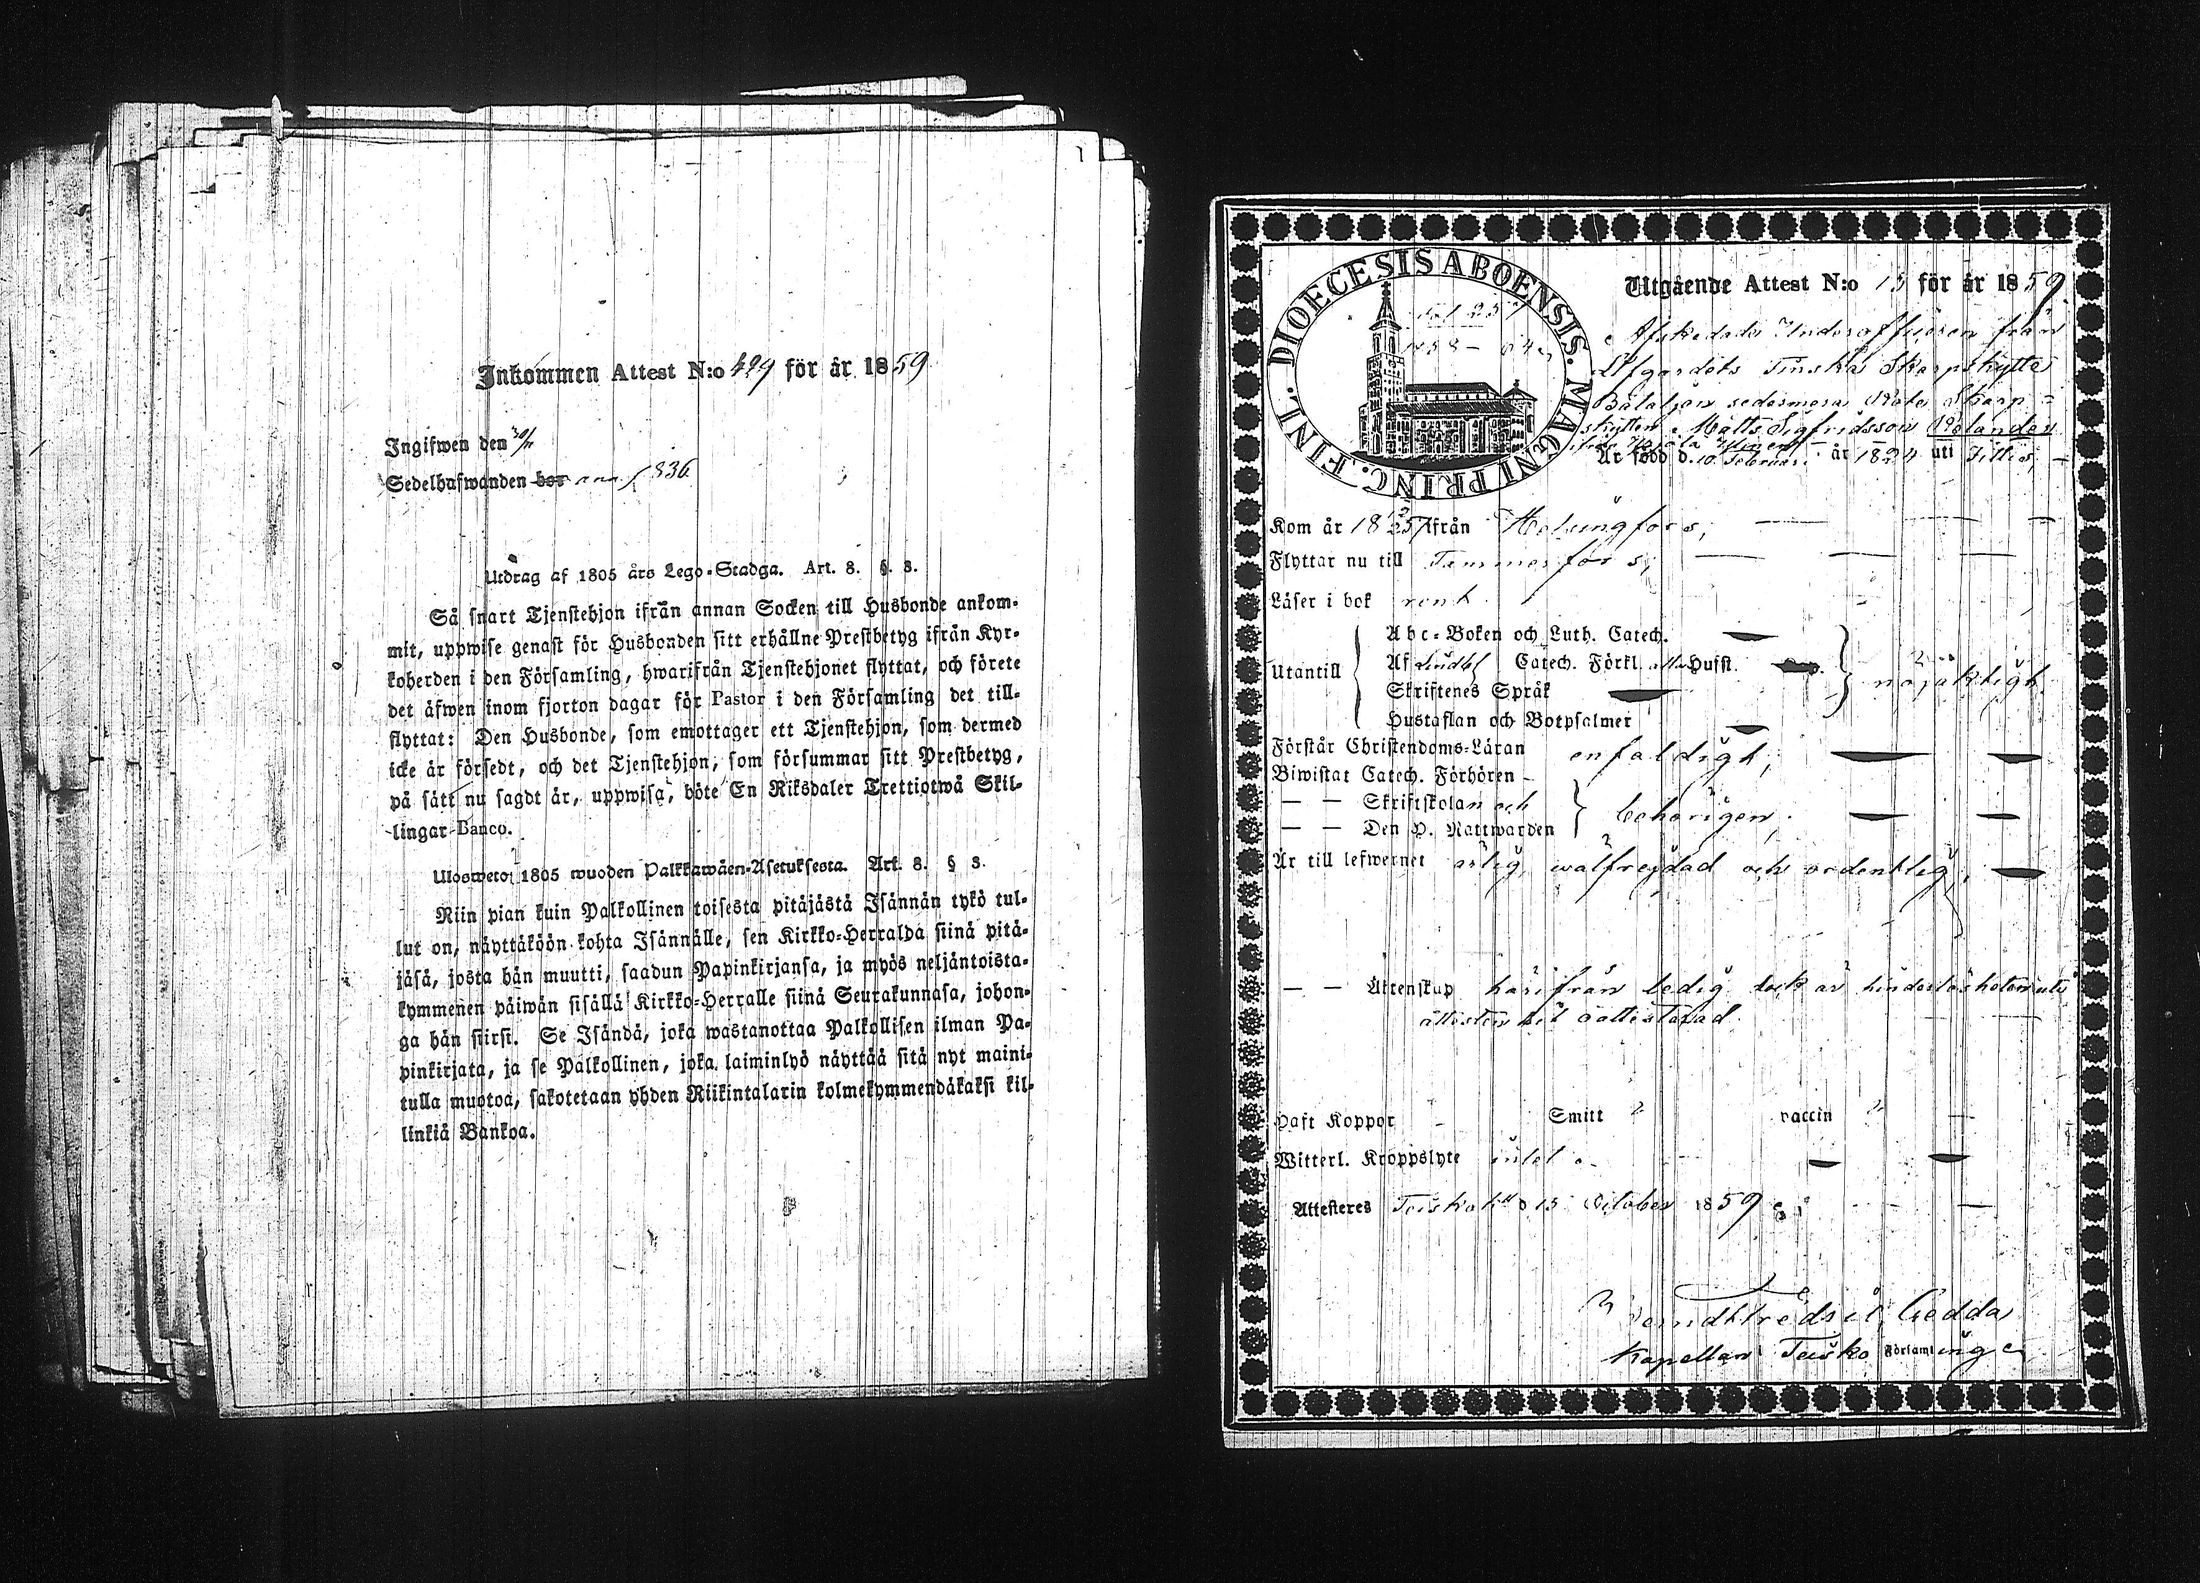 Inkommen Attest N:o 429 för år 1859
Ingifwen den 30/11
Sedelhafwanden bor 836
Utdrag af 1805 års Lego-Stadga. Art. 8. §. 8.
Så snart Tjenstehjon ifrån annan Socken till Husbonde ankom-
mit, uppwise genast för Husbonden sitt erhållne Prestbetyg ifrån Kyr-
koherden i den Församling, hwarifrån Tjenstehjonet flyttat, och förete
det äfwen inom fjorton dagar för Pastor i den Församling det till-
flyttat: Den Husbonde, som emottager ett Tjenstehjon, som dermed
icke är försedt, och det Tjenstehjon, som försummar sitt Prestbetyg,
på sätt nu sagdt är, uppwisa, böte En Riksdaler Trettiotwå Skil-
lingar Banco.
Uloswето 1805 wuoden Palkkawäen-Asetuksesta. Art. 8. § 8.
Niin pian kuin Palkollinen toisesta pitäjästä Isännän tykö tul-
lut on, näyttäköön kohta Isännälle, sen Kirkko-Herralda siinä pitä-
jäsä, josta hän muutti, saadun Papinkirjansa, ja myös neljäntoista-
kymmenen päiwän sisällä Kirkko-Herralle siinä Seurakunnasa, johon-
ga hän siirsi. Se Isändä, joka wastanottaa Palkollisen ilman Pa-
pinkirjata, ja se Palkollinen, joka laiminlyö näyttää sitä nyt maini-
tulla muotoa, sakotetaan yhden Riikintalarin kolmekymmendäkaksi kil-
linkiä Bankoa.
DIOECESIS ABOENSIS. MAGNI PRINC. FINL.
Utgående Attest N:o 15 för år 1859
Afskedade Underofficeren från
Lifgardets Finska Skarpskytte
Bataljon sedermera Rote Skarp-
skytten Matts Sigfridsson Welander
Är född d. 10 Februari år 1824 uti
Kom år 1857 ifrån Helsingfors,
Flyttar nu till Tammerfors,
Läser i bok rent
Utantill
Abc-Boken och Luth. Catech.
Af Lindbl Catech. Förkl. Hufst.
Skriftenes Språk
Hustaflan och Botpsalmer
nöjaktigt
Förstår Christendoms-Läran enfaldigt,
Biwistat Catech. Förhören
— — Skriftskolan och
— — Den H. Nattwarden
behörigen,
Är till lefwernet ärlig wälfrejdad och ordentlig,
— — Äktenskap härifrån ledig dock är hinderslösheten
oattesterad
Haft Koppor Smitt vaccin
Witterl. Kroppslyte intet
Attesteres Teisko d 15 October 1859
Gadda
Kapellan Teisko Församling